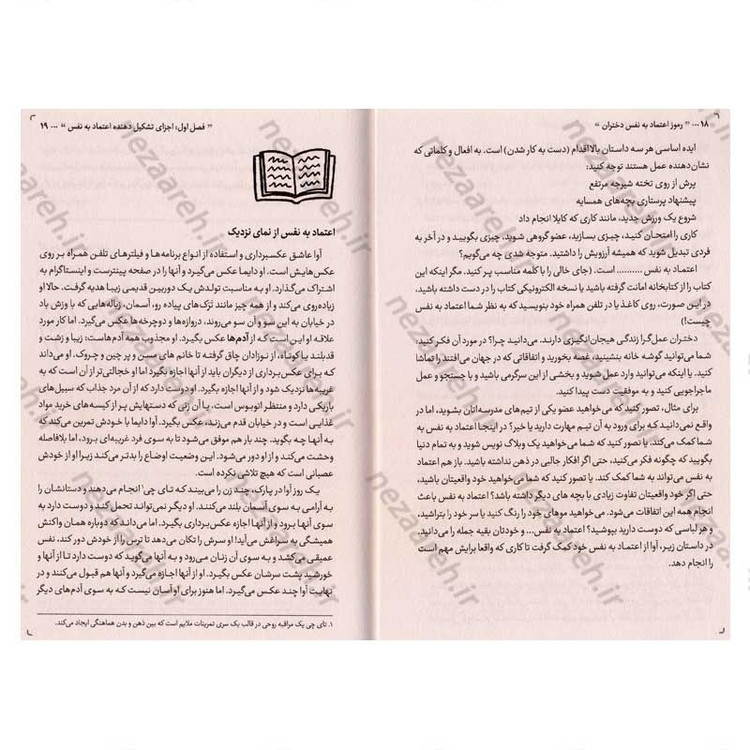 ۱۸ ... " رموز اعتماد به نفس دختران "
ایده اساسی هر سه داستان بالا اقدام (دست به کار شدن) است. به افعال و کلماتی که
نشان‌دهنده عمل هستند توجه کنید:
پرش از روی تخته شیرجه مرتفع
پیشنهاد پرستاری بچه‌های همسایه
شروع یک ورزش جدید، مانند کاری که کایلا انجام داد
کاری را امتحان کنید، چیزی بسازید، عضو گروهی شوید، چیزی بگویید و در آخر به
فردی تبدیل شوید که همیشه آرزویش را داشتید. متوجه شدی چه می‌گویم؟
اعتماد به نفس .......... است. (جای خالی را با کلمه مناسب پر کنید. مگر اینکه این
کتاب را از کتابخانه امانت گرفته باشید یا نسخه الکترونیکی کتاب را در دست داشته باشید،
در این صورت، روی کاغذ یا در تلفن همراه خود بنویسید که به نظر شما اعتماد به نفس
چیست!)
دختران عمل‌گرا زندگی هیجان‌انگیزی دارند. می‌دانید چرا؟ در مورد آن فکر کنید:
شما می‌توانید گوشه خانه بنشینید، غصه بخورید و اتفاقاتی که در جهان می‌افتند را تماشا
کنید. یا اینکه می‌توانید وارد عمل شوید و بخشی از این سرگرمی باشید و با جستجو و عمل
ماجراجویی کنید و به موفقیت دست پیدا کنید.
برای مثال، تصور کنید که می‌خواهید عضو یکی از تیم‌های مدرسه‌تان بشوید، اما در
واقع نمی‌دانید که برای ورود به آن تیم مهارت دارید یا خیر؟ در اینجا اعتماد به نفس به
شما کمک می‌کند. یا تصور کنید که شما می‌خواهید یک وبلاگ نویس شوید و به تمام دنیا
بگویید که چگونه فکر می‌کنید، حتی اگر افکار جالبی در ذهن نداشته باشید. باز هم اعتماد
به نفس می‌تواند به شما کمک کند. یا تصور کنید که شما می‌خواهید خود واقعیتان باشید،
حتی اگر خود واقعیتان تفاوت زیادی با بچه های دیگر داشته باشد؟ اعتماد به نفس باعث
انجام همه این اتفاقات می‌شود. می‌خواهید موهای خود را رنگ کنید یا سر خود را بتراشید،
و هر لباسی که دوست دارید بپوشید؟ اعتماد به نفس... و خودتان بقیه جمله را می‌دانید.
در داستان زیر، آوا از اعتماد به نفس خود کمک گرفت تا کاری که واقعا برایش مهم است
را انجام دهد.
" فصل اول: اجزای تشکیل دهنده اعتماد به نفس " ... ۱۹
اعتماد به نفس از نمای نزدیک
آوا عاشق عکسبرداری و استفاده از انواع برنامه‌ها و فیلترهای تلفن همراه بر روی
عکس‌هایش است. او دایما عکس می‌گیرد و آنها را در صفحه پینترست و اینستاگرام به
اشتراک می‌گذارد. او به مناسبت تولدش یک دوربین قدیمی زیبا هدیه گرفت. حالا او
زیاده‌روی می‌کند و از همه چیز مانند تَرَک‌های پیاده رو، آسمان، زباله‌هایی که با وزش باد
در خیابان به این سو و آن سو می‌روند، دروازه‌ها و دوچرخه‌ها عکس می‌گیرد. اما کار مورد
علاقه او این است که از آدم‌ها عکس بگیرد. او مجذوب همه آدم‌هاست: زیبا و زشت و
قدبلند یا کوتاه، از نوزادان چاق گرفته تا خانم های مسن و پر چین و چروک. او می‌داند
که برای عکس‌برداری از دیگران باید از آنها اجازه بگیرد اما او خجالتی‌تر از آن است که به
غریبه‌ها نزدیک شود و از آنها اجازه بگیرد. او دوست دارد که از آن مرد جذاب که سبیل‌های
باریکی دارد و منتظر اتوبوس است، یا آن زنی که دستهایش پر از کیسه‌های خرید مواد
غذایی است و در خیابان قدم می‌زند، عکس بگیرد. آوا دایما با خودش تمرین می‌کند که
به آنها چه بگوید. چند بار هم موفق می‌شود تا به سوی فرد غریبه‌ای برود، اما بلافاصله
وحشت می‌کند و از او دور می‌شود. این وضعیت اوضاع را بدتر می‌کند زیرا او از خودش
عصبانی است که هیچ تلاشی نکرده است.
یک روز آوا در پارک، چند زن را می‌بیند که تای چی۱ انجام می‌دهند و دستانشان را
به آرامی به سوی آسمان بلند می‌کنند. او دیگر نمی‌تواند تحمل کند و دوست دارد به
سوی آنها برود و از آنها اجازه عکس‌برداری بگیرد. اما می‌داند که دوباره همان واکنش
همیشگی به سراغش می‌آید! او سرش را تکان می‌دهد تا ترس را از خودش دور کند، نفس
عمیقی می‌کشد و به سوی آن زنان می‌رود و به آنها می‌گوید که دوست دارد تا از آنها و
خورشید پشت سرشان عکس بگیرد. او از آنها اجازه می‌گیرد و آنها هم قبول می‌کنند و در
نهایت آوا چند عکس می‌گیرد. اما هنوز برای او آسان نیست که به سوی آدم‌های دیگر
۱. تای چی یک مراقبه روحی در قالب یک سری تمرینات ملایم است که بین ذهن و بدن هماهنگی ایجاد می‌کند.
nezaareh.ir